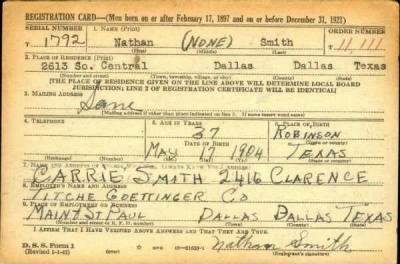 REGISTRATION CARD—(Men born on or after February 17, 1897 and on or before December 31, 1921)
SERIAL NUMBER 1. NAME (Print) ORDER NUMBER
T 1792 Nathan (NONE) Smith T 11,111
(First) (Middle) (Last)
2. PLACE OF RESIDENCE (Print)
2613 So. Central Dallas Dallas Texas
(Number and street) (Town, township, village, or city) (County) (State)
[THE PLACE OF RESIDENCE GIVEN ON THE LINE ABOVE WILL DETERMINE LOCAL BOARD
JURISDICTION; LINE 2 OF REGISTRATION CERTIFICATE WILL BE IDENTICAL]
3. MAILING ADDRESS
Same
[Mailing address if other than place indicated on line 2. If same insert word same]
4. TELEPHONE 5. AGE IN YEARS 6. PLACE OF BIRTH
37 ROBINSON
DATE OF BIRTH
MAY 17 1904 TEXAS
(Mo.) (Day) (Yr.)
7. NAME AND ADDRESS OF
CARRIE SMITH 2416 CLARENCE
8. EMPLOYER'S NAME AND ADDRESS
TITCHE GOETTINGER CO
9. PLACE OF EMPLOYMENT OR BUSINESS
MAIN & ST. PAUL DALLAS DALLAS TEXAS
(Number and street or R. F. D. number) (Town) (County) (State)
I AFFIRM THAT I HAVE VERIFIED ABOVE ANSWERS AND THAT THEY ARE TRUE.
D. S. S. Form 1
(Revised 1-1-42)
Nathan Smith
(Registrant's signature)